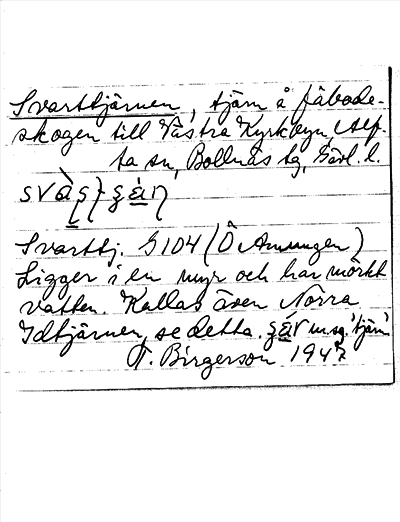 Svarttjärnen, tjärn å fäbode-
skogen till Västra Kyrkbyn, Alf-
ta sn, Bollnäs tg, Gävl. l.
Svarttj. G104 (Ö Amungen)
Ligger i en myr och har mörkt
vatten. Kallas även Norra
Idtjärnen, se detta. m.sg. 'tjärn'
T. Birgerson 1947